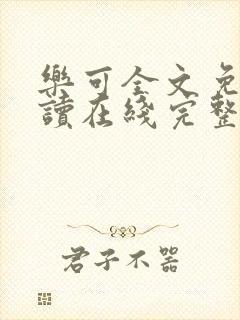 樂可全文免
讀在綫完整
君子不器